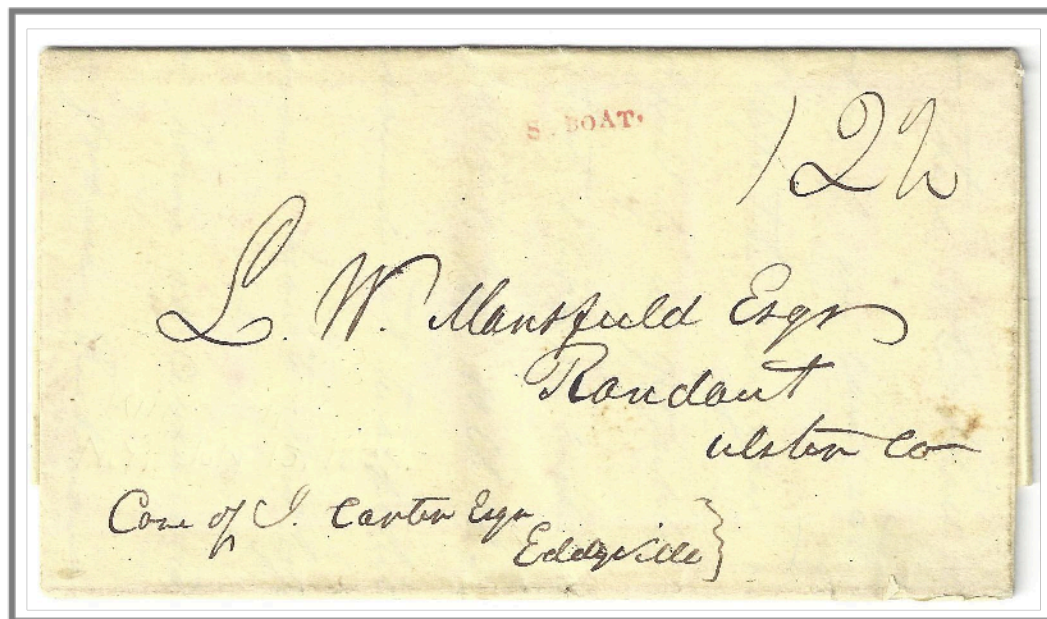 S. BOAT.
12½
L. W. Mansfield Esqr
Rondout
Ulster Co
Care of J. Carter Eqr
Eddyville